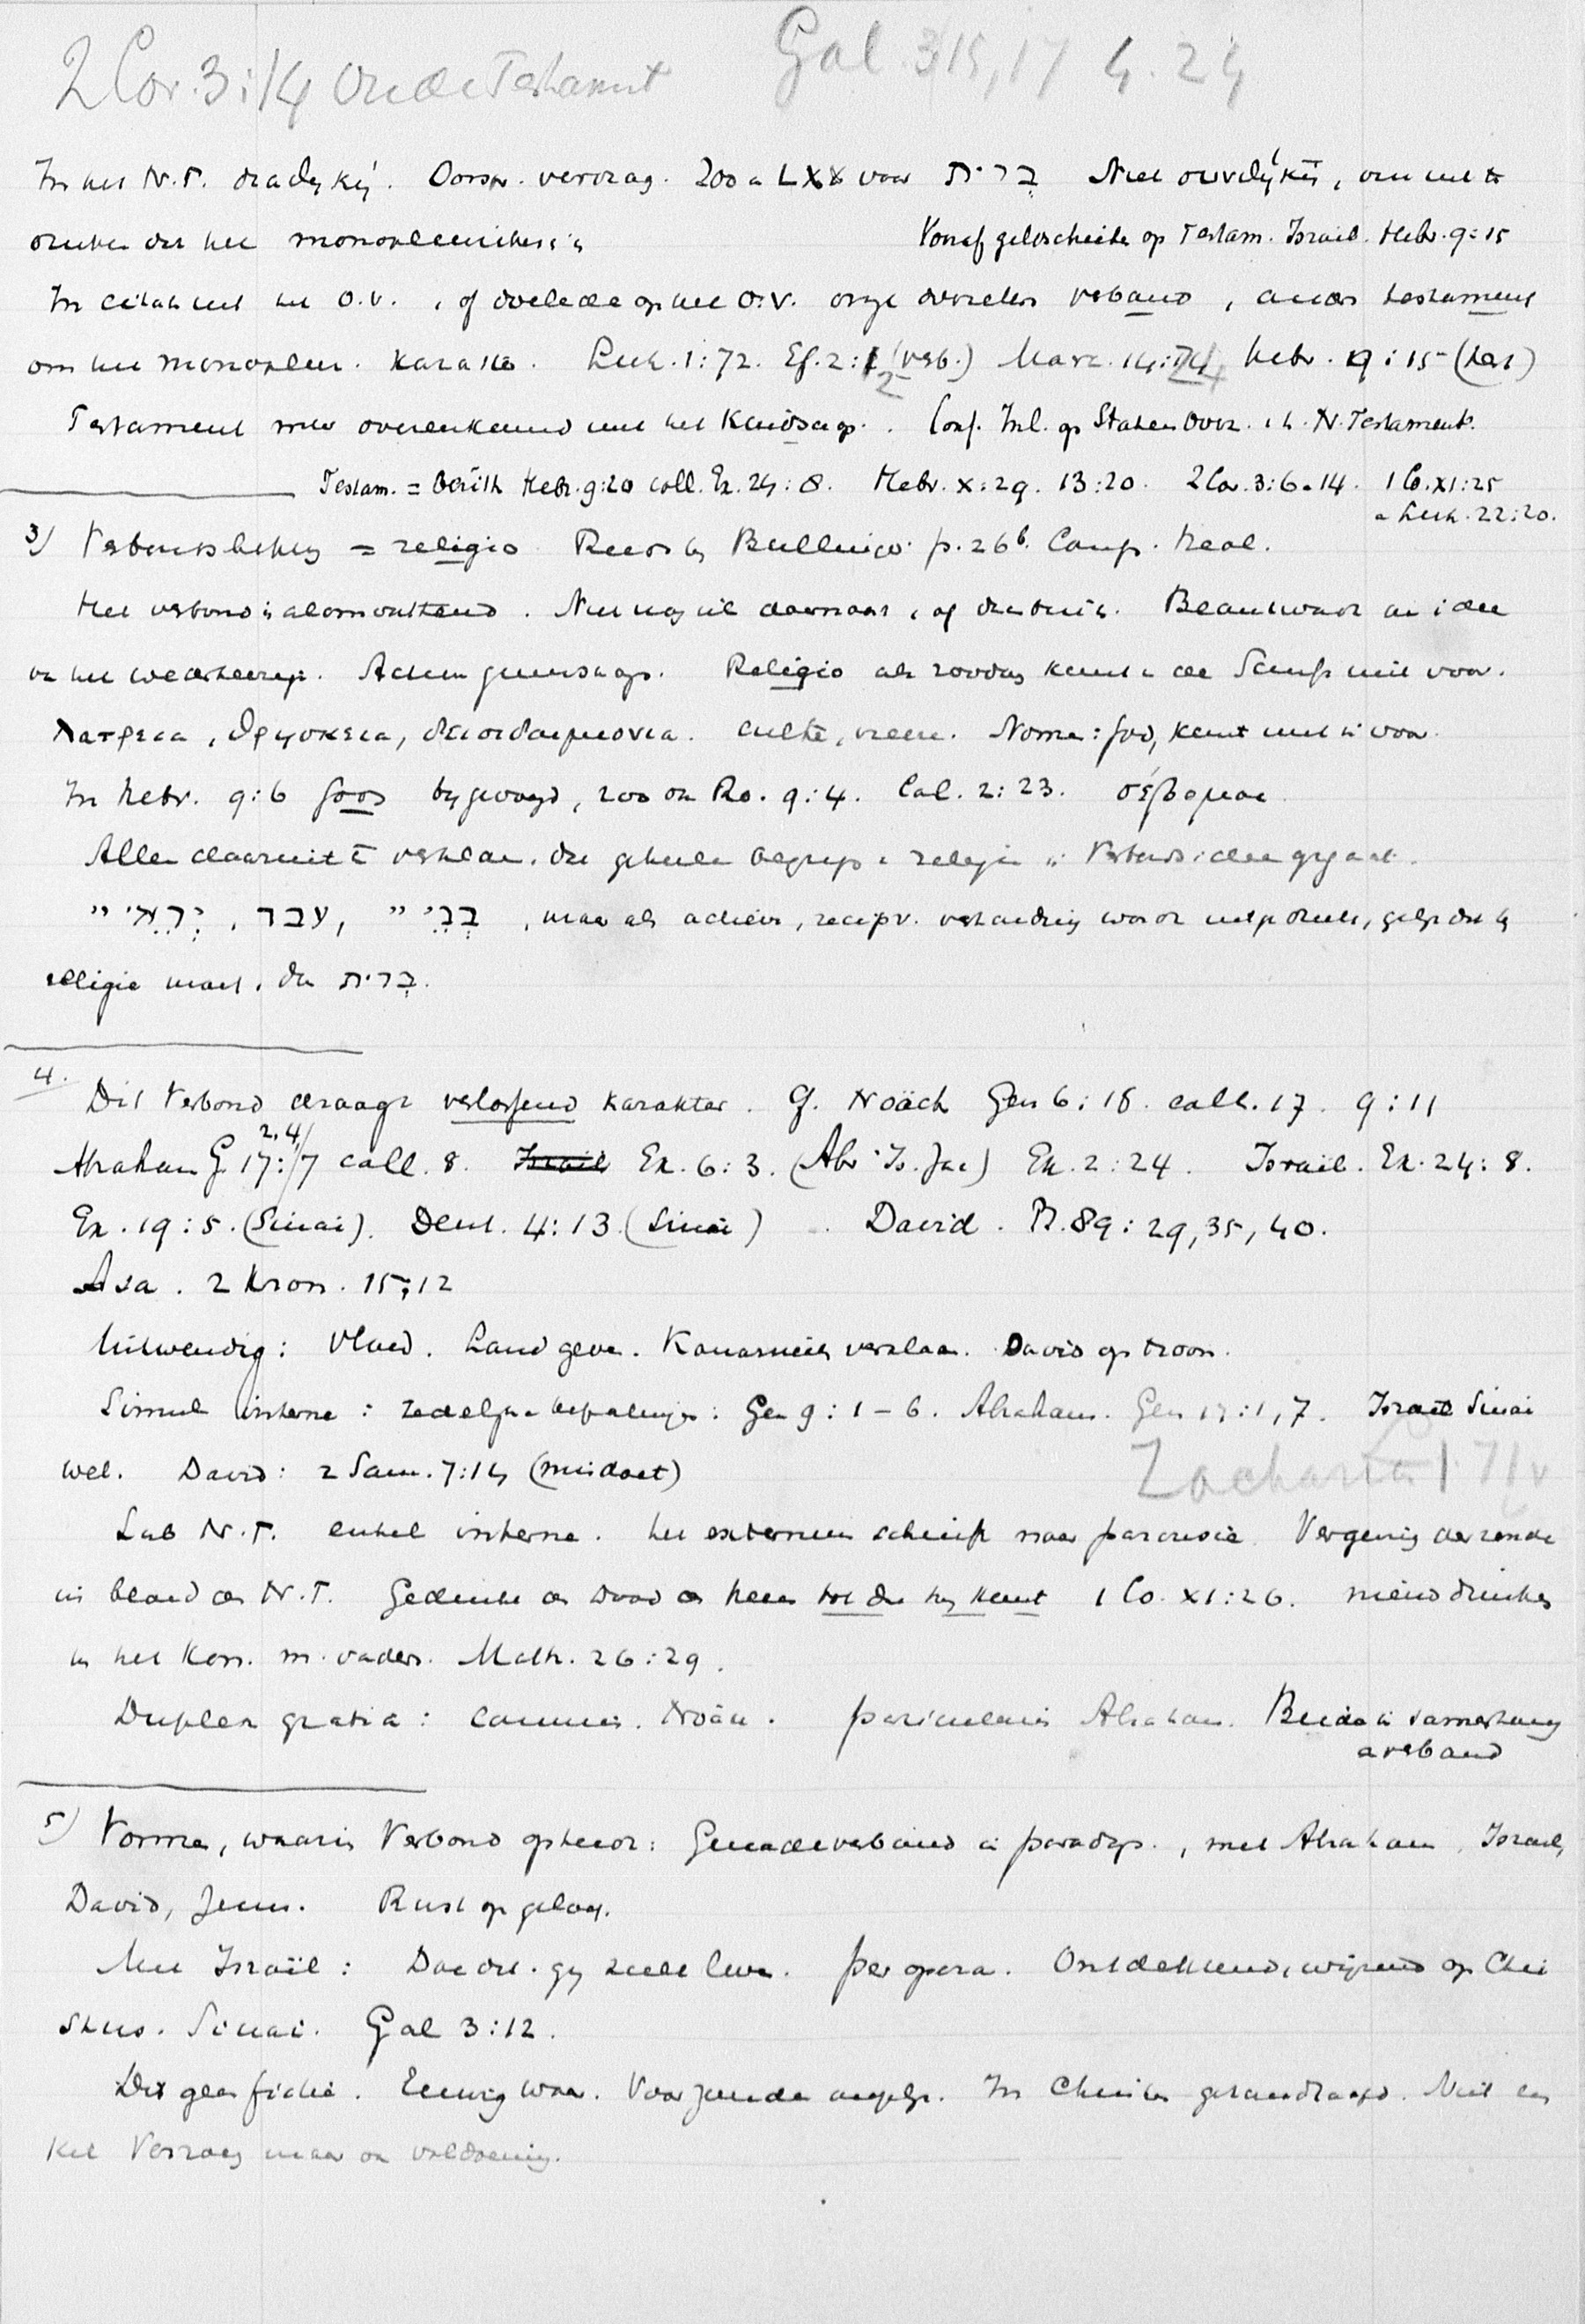 2 Cor. 3:14 Oude Testament Gal. 3:15, 17 4. 24
In het N.T. διαθήκη. Oorspr. verdrag. Zoo in LXX voor בְּרִית Niet συνθήκη, om niet te
denken dat het monopleurisch is Vooraf geloscheiden op Testam. Israel. Hebr. 9:15
In citat uit het O.V., of doelende op het O.V. onze overzetters verband, anders testament
om het monopleur. karakter. Luk. 1:72. Ef. 2:12 (verb.) Marc. 14:24 Hebr. 9:15 (test)
Testament meer overeenkomend met het kindschap. Conf. Inl. op Staten Overz. v. h. N. Testament.
Testam. = berith Hebr. 9:20 coll. Ex. 24:8. Hebr. X:29. 13:20. 2 Cor. 3:6.14. 1 Co. XI:25
Luk. 22:20.
3) = religio Reeds by Bullinger p. 26b. Comp.
Het verbond is alomvattend. Niet nog iets daarnaast, of daarbuiten. Beantwoordt aan idee
van het wederkeerige. Religio als zoodanig komt in de Schrift niet voor.
λατρεια, θρησκεια, δεισιδαιμονια. vreeze. Noma: god, komt niet in voor.
In Hebr. 9:6 Gods bijgevoegd, zoo ook Ro. 9:4. Col. 2:23. σέβομαι
Alleen daaruit te verklaren, dat geheele begrip religie in Verbondsidee opgaat.
" יִרְאֵי, עבד, " , maar als actieve, recipr. verhouding wordt uitgedrukt, gelijk dit bij
religie moet, dan בְּרִית.
4. Dit Verbond draagt verlossend karakter. Cf. Noäch Gen 6:18. coll. 17. 9:11
2,4,
Abraham G. 17:7 coll. 8. Israel Ex. 6:3. (Abr. Is. Jac) Ex. 2:24. Israël. Ex. 24:8.
Ex. 19:5. (Sinai). Deut. 4:13. (Sinai) David. Ps. 89:29, 35, 40.
Asa. 2 Kron. 15:12
Uitwendig: Vloed. Land geven. Kanaanieten verslaan. David op troon.
Simul interne: zedelijke bepalingen: Gen 9:1–6. Abraham. Gen 17:1,7. Israel Sinai
wet. David: 2 Sam. 7:14 (misdoet) Zacharia 1:71v
Sub N.T. enkel interne. het externum schuift naar parousie. Vergeving der zonde
in bloed des N.T. Gedenke den dood des Heren tot dat hij komt 1 Co. XI:26. nieuw drinken
in het Kon. m. vaders. Matth. 26:29.
Duplex gratia: communis. Noäch. particularis Abraham. Beide in samenhang
verband
5) Vormen, waarin Verbond optreedt: Genadeverbond in paradijs, met Abraham, Israel,
David, Jezus. Rust op geloof.
Met Israël: Doe dit. gij zult leven. per opera. Ontdekkend, wijzend op Chri
stus. Sinai. Gal 3:12.
Dit geen fictie. Eeuwig waar. Voor zondaar In Christus gehandhaafd. Niet en
kel Verzoening maar ook voldoening.